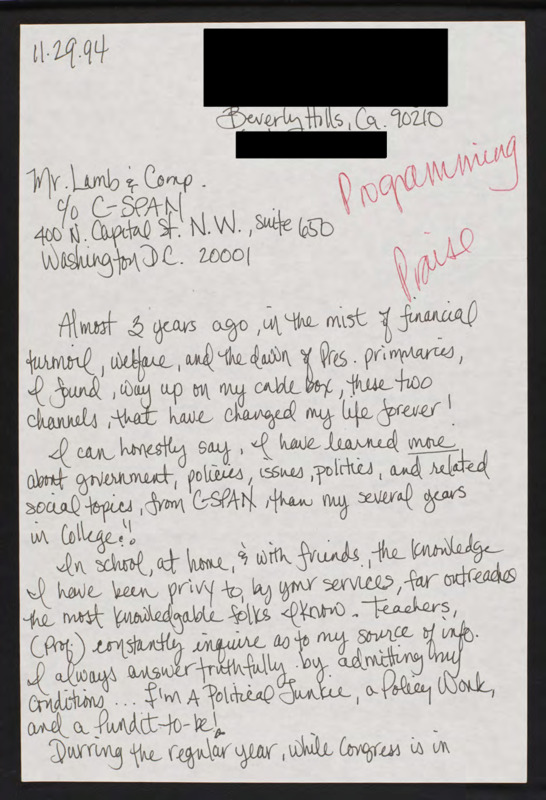 11.29.94
Beverly Hills, Ca. 90210
Programming
Praise
Mr. Lamb & Comp.
c/o C-SPAN
400 N. Capital St. N.W., Suite 650
Washington D.C. 20001
Almost 3 years ago, in the mist of financial
turmoil, welfare, and the dawn of Pres. primmaries,
I found, way up on my cable box, these two
channels, that have changed my life forever!
I can honestly say, I have learned more
about government, policies, issues, politics, and related
social topics, from C-SPAN, than my several years
in College!!
In school, at home, & with friends, the knowledge
I have been privy to, by your services, far outreaches
the most knowledgable folks I know. Teachers,
(Prof.) constantly inquire as to my source of info.
I always answer truthfully by admitting my
conditions... I'm A Political Junkie, a Policy Wonk,
and a Pundit-to-be!
Durring the regular year, while Congress is in